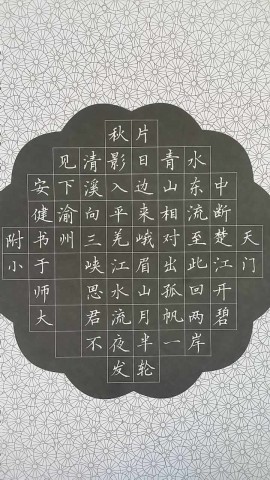 天门
中断楚江开碧
水东流至此回两岸
青山相对出孤帆一
片日边来峨眉山月半轮
秋影入平羌江水流夜发
清溪向三峡思君不
见下渝州
安健书于师大
附小